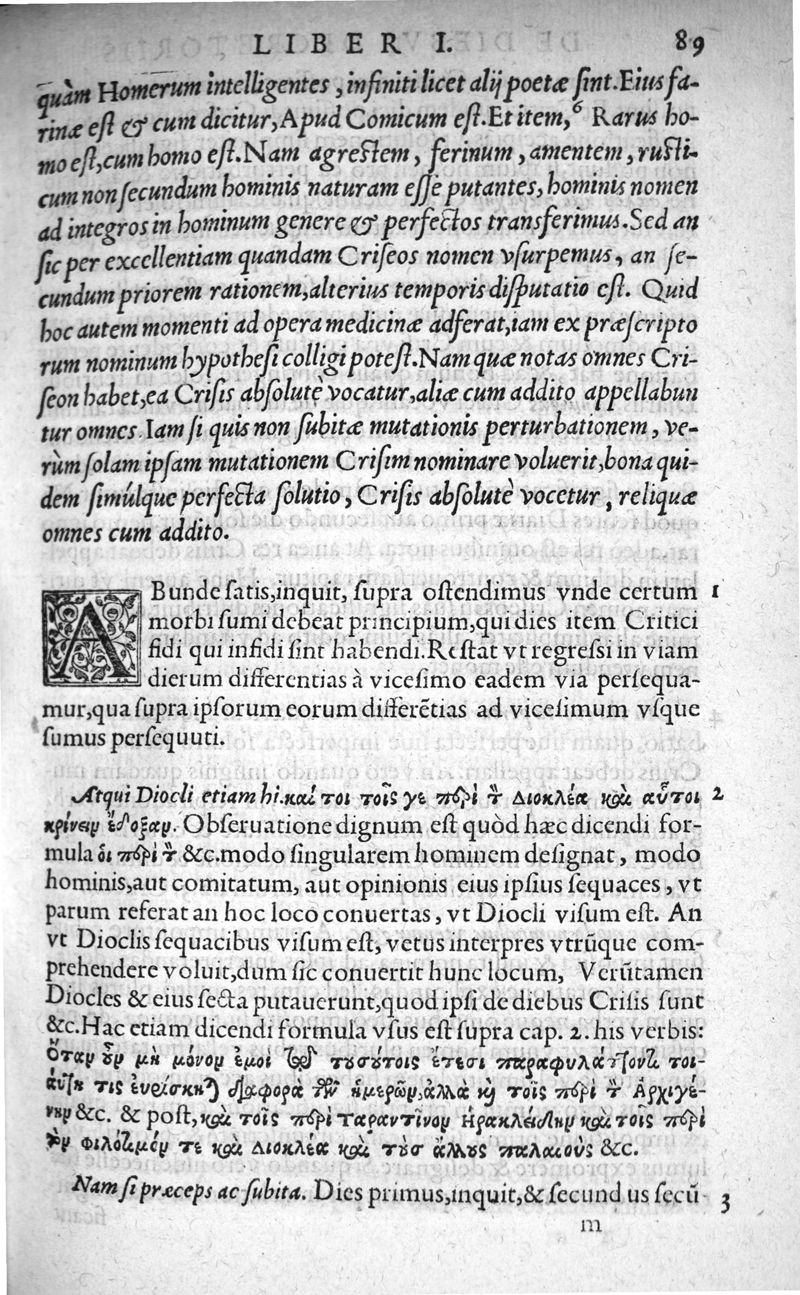 LIBER I. 89
quàm Homerum intelligentes, infiniti licet alij poetæ sint. Eius fa-
rinæ est & cum dicitur, Apud Comicum est. Et item, 6 Rarus ho-
mo est, cum homo est. Nam agrestem, ferinum, amentem, rusti-
cum non secundum hominis naturam esse putantes, hominis nomen
ad integros in hominum genere & perfectos transferimus. Sed an
sic per excellentiam quandam Criseos nomen vsurpemus, an se-
cundum priorem rationem, alterius temporis disputatio est. Quid
hoc autem momenti ad opera medicinæ adferat, iam ex præscripto
rum nominum hypothesi colligi potest. Nam quæ notas omnes Cri-
seon habet, ea Crisis absolutè vocatur, aliæ cum addito appellabun
tur omnes. Iam si quis non subitæ mutationis perturbationem, ve-
rùm solam ipsam mutationem Crisim nominare voluerit, bona qui-
dem simúlque perfecta solutio, Crisis absolutè vocetur, reliquæ
omnes cum addito.
ABunde satis, inquit, supra ostendimus vnde certum 1
morbi sumi debeat principium, qui dies item Critici
fidi qui infidi sint habendi. Restat vt regressi in viam
dierum differentias à vicesimo eadem via persequa-
mur, qua supra ipsorum eorum differētias ad vicesimum vsque
sumus persequuti.
Atqui Diocli etiam hi. καί τοι τοῖς γε περὶ τ Διοκλέα καὶ αὖτοι 2
κρίνειν ἔδοξαν. Obseruatione dignum est quòd hæc dicendi for-
mula ὁι περὶ τ &c. modo singularem hominem designat, modo
hominis, aut comitatum, aut opinionis eius ipsius sequaces, vt
parum referat an hoc loco conuertas, vt Diocli visum est. An
vt Dioclis sequacibus visum est, vetus interpres vtrūque com-
prehendere voluit, dum sic conuertit hunc locum, Verūtamen
Diocles & eius secta putauerunt, quod ipsi de diebus Crisis sunt
&c. Hac etiam dicendi formula vsus est supra cap. 2. his verbis:
Ὅταν οὖν μὴ μόνον ἐμοὶ ἐν τουσούτοις ἔτεσι παραφυλάττοντι τοι-
αύτη τις εὑρίσκηται διαφορὰ τῶν ἡμερῶν, ἀλλὰ κὶ τοῖς περὶ τ Ἀρχιγέ-
νην &c. & post, καὶ τοῖς περὶ Ταραντῖνον Ἡρακλείδην καὶ τοῖς περὶ
τὸν Φιλότιμόν τε καὶ Διοκλέα καὶ τοὺσ ἄλλους παλαιοὺς &c.
Nam si præceps ac subita. Dies primus, inquit, & secund us secū- 3
m